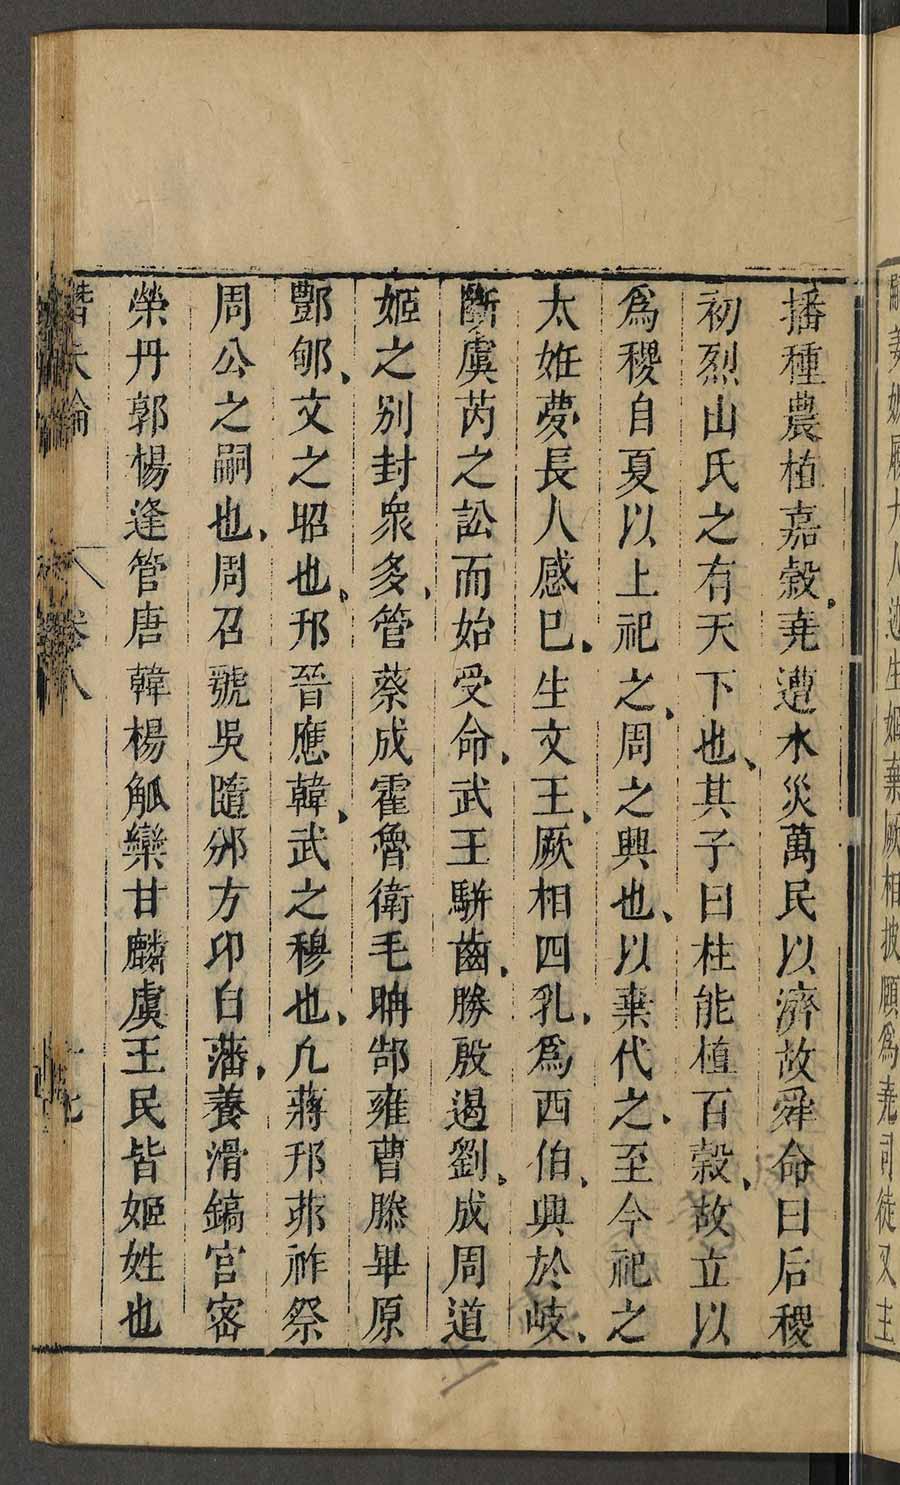 顧為堯司徒又主
播種農植嘉穀堯遭水災萬民以濟故舜命曰后稷
初烈山氏之有天下也其子曰柱能植百穀故立以
為稷自夏以上祀之周之興也以棄代之至今祀之
太姙夢長人感巳生文王厥相四乳為西伯興於岐
斷虞芮之訟而始受命武王駢齒勝殷遏劉成周道
姬之别封衆多管蔡成霍魯衛毛聃郜雍曹滕畢原
酆郇文之昭也邘晉應韓武之穆也凢蔣邘茆祚祭
周公之嗣也周召虢吳隨邠方卬自藩養滑鎬宫密
榮丹郭楊逢管唐韓楊觚欒甘麟虞王民皆姬姓也
卷八